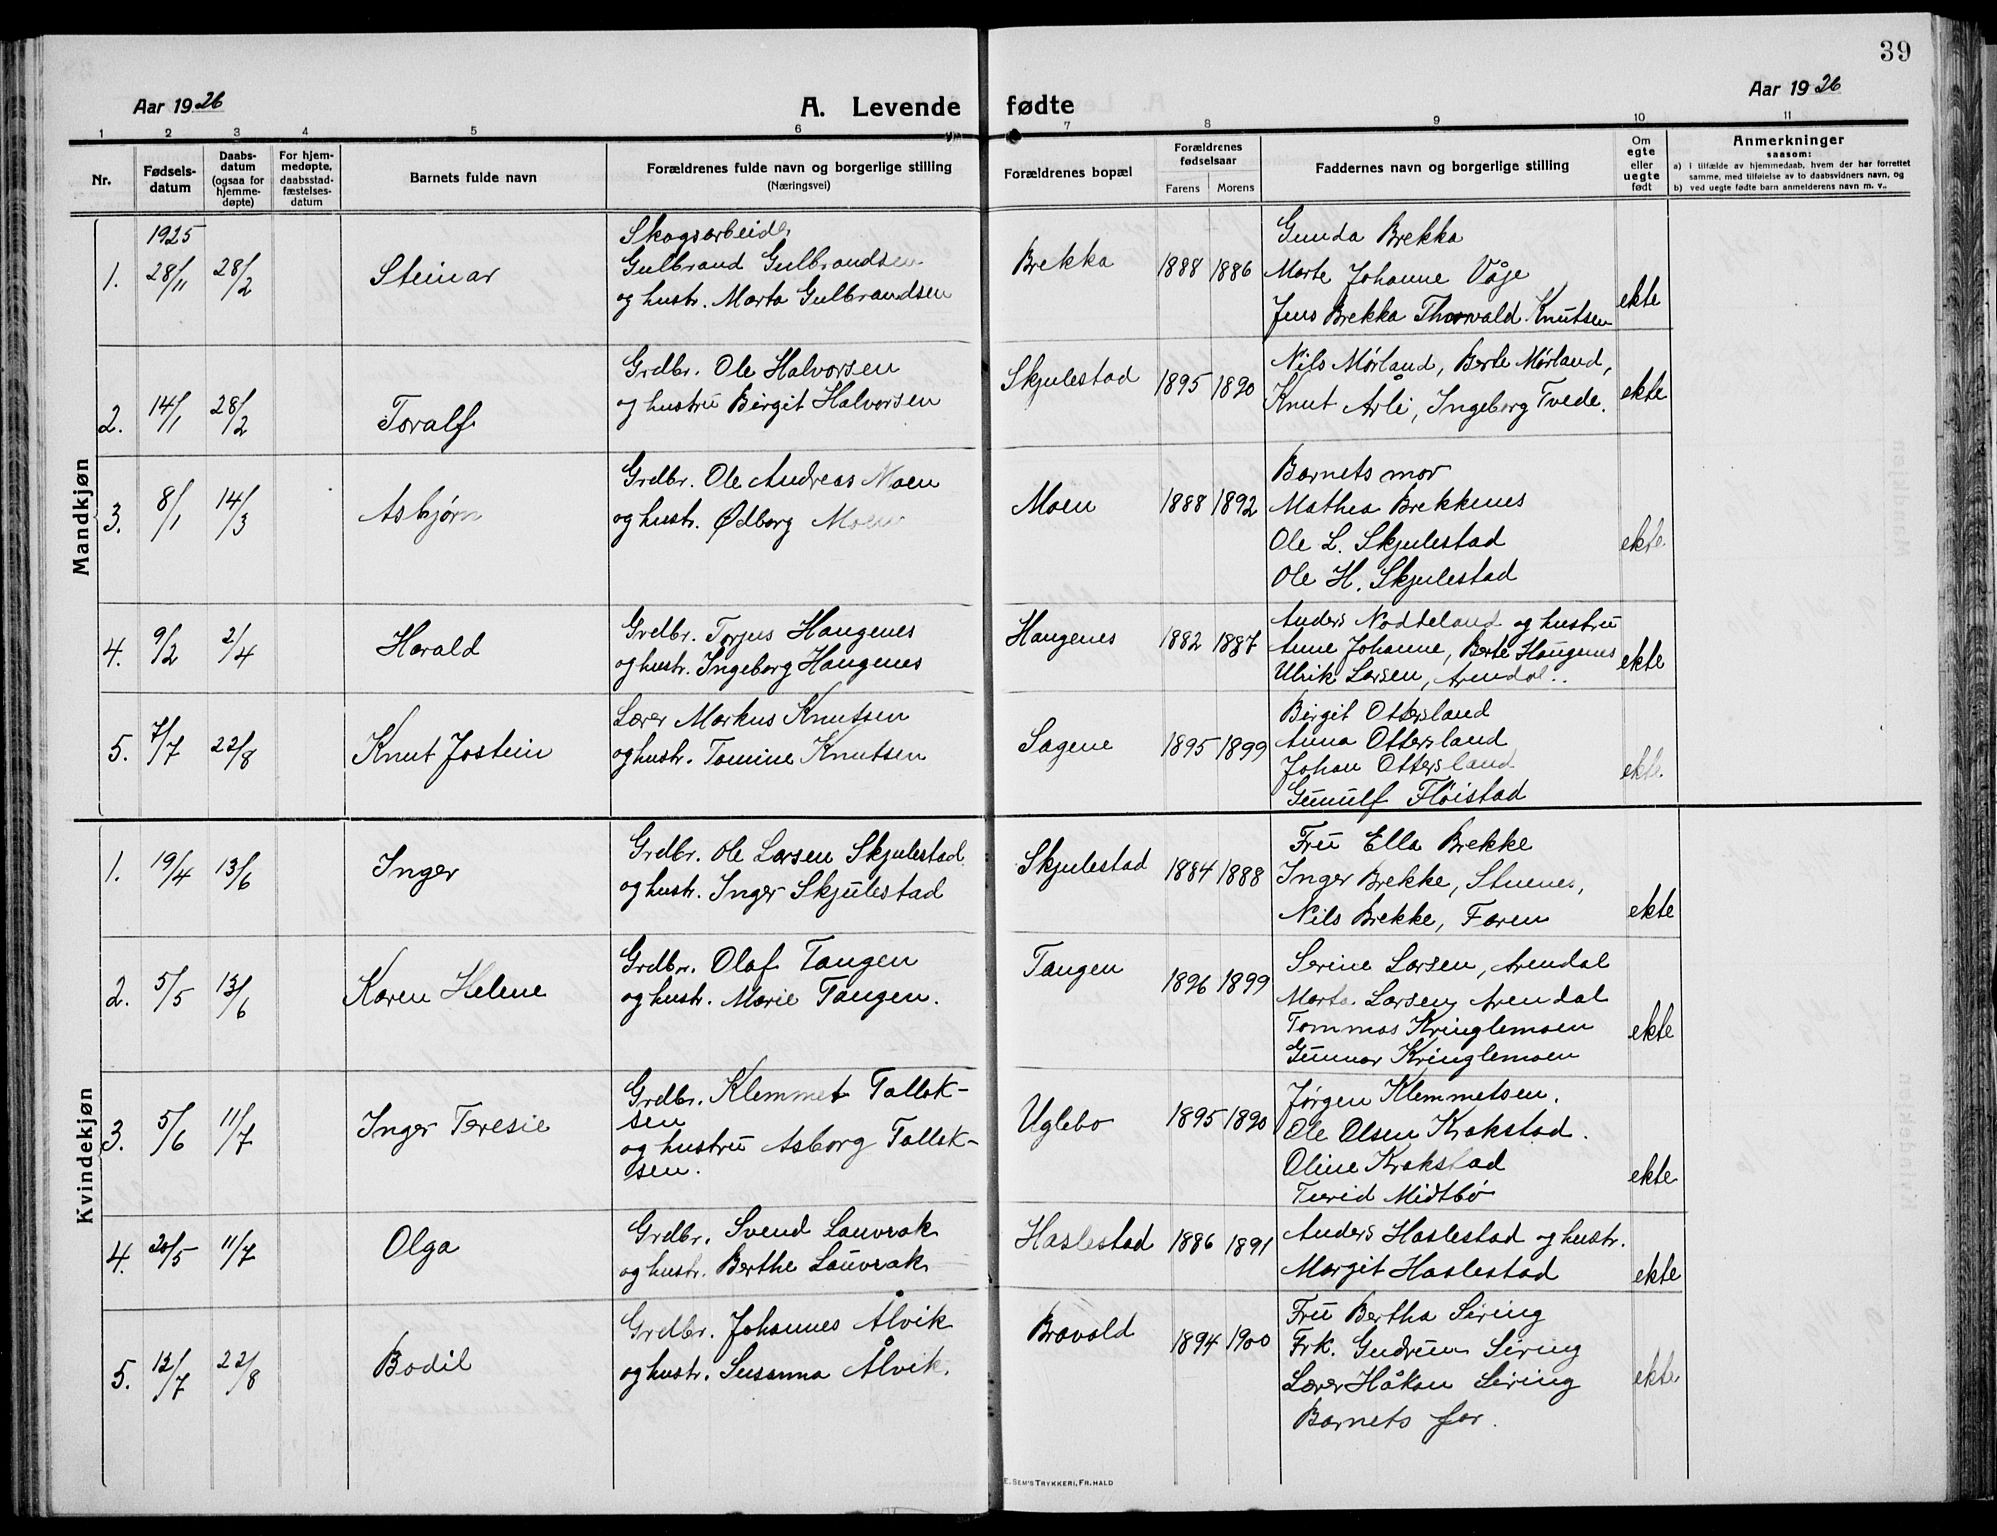 39
Aar 1926
A. Levende fødte
Aar 1926
1 2 3 4 5 6 7 8 9 10 11
Nr.
Fødsels-
datum
Daabs-
datum
(ogsaa for
hjemme-
døpte)
For hjem-
medøpte,
daabsstad-
fæstelses-
datum
Barnets fulde navn
Forældrenes fulde navn og borgerlige stilling
(Næringsvei)
Forældrenes bopæl
Forældrenes
fødselsaar
Farens Morens
Faddernes navn og borgerlige stilling
Om
egte
eller
uegte
født
Anmerkninger
saasom:
a) i tilfælde av hjemmedaab, hvem der har forrettet
samme, med tilføielse av to daabsvidners navn, og
b) ved uegte fødte barn anmelderens navn m. v..
Mandkjøn
1925
1. 28/11 28/2 Steinar
Skogsarbeider
Gulbrand Gulbrandsen
og hustr. Marta Gulbrandsen
Brekka 1888 1886
Gunda Brekka
Marte Johanne Våje
Jens Brekka Thorvald Knutsen
ekte
2. 14/1 28/2 Toralf
Grdbr. Ole Halvorsen
og hustru Birgit Halvorsen
Skjulestad 1895 1890
Nils Mørland, Berte Mørland,
Knut Arli, Ingeborg Tvede.
ekte
3. 8/1 14/3 Asbjørn
Grdbr. Ole Andreas Moen
og hustr. Ødborg Moen
Moen 1888 1892
Barnets mor
Mathea Brekkenes
Ole L. Skjulestad
Ole H. Skjulestad
ekte
4. 9/2 2/4 Harald
Grdbr. Torjus Haugenes
og hustr. Ingeborg Haugenes
Haugenes 1882 1887
Anders Nodteland og hustru
Anne Johanne, Berte Haugenes
Ulrik Larsen, Arendal.
ekte
5. 7/7 22/8 Knut Jostein
Lærer Markus Knutsen
og hustr. Tomine Knutsen
Sagene 1895 1899
Birgit Ottersland
Anna Ottersland
Johan Ottersland
Gunulf Fløistad
ekte.
Kvindekjøn
1. 19/4 13/6 Inger
Grdbr. Ole Larsen Skjulestad
og hustr. Inger Skjulestad
Skjulestad 1884 1888
Fru Ella Brekke
Inger Brekke, Stuenes,
Nils Brekke, Faren
ekte
2. 5/5 13/6 Karen Helene
Grdbr. Olaf Tangen
og hustr. Marie Tangen.
Tangen 1896 1899
Serine Larsen, Arendal
Marta Larsen, Arendal
Tommas Kringlemoen
Gunnar Kringlemoen
ekte
3. 5/6 11/7 Inger Teresie
Grdbr. Klemmet Tallak-
sen
og hustru Asborg Tallak-
sen.
Uglebo 1895 1890
Jørgen Klemmetsen.
Ole Olsen Krakstad.
Oline Krakstad
Turid Midtbø
ekte
4. 20/5 11/7 Olga
Grdbr. Svend Lauvrak
og hustr. Berthe Lauvrak
Haslestad 1886 1891
Anders Haslestad og hustr.
Margit Haslestad
ekte
5. 12/7 22/8 Bodil
Grdbr. Johannes Ålvik
og hustr. Susanna Ålvik.
Bråvold 1894 1900
Fru Bertha Siring
Frk. Gudrun Siring
Lærer Håkon Siring
Barnets far.
ekte
E. SEM'S TRYKKERI, FR. HALD